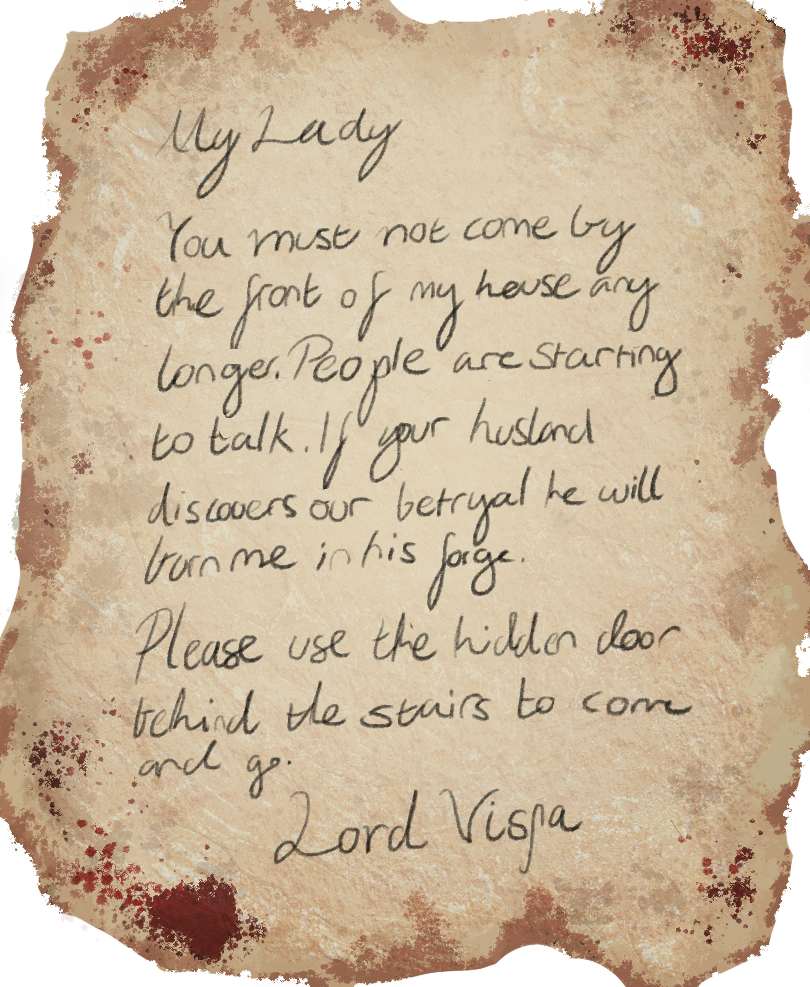 My Lady
You must not come by
the front of my house any
longer. People are starting
to talk. If your husband
discovers our betryal he will
burn me in his forge.
Please use the hidden door
behind the stairs to come
and go.
Lord Vispa